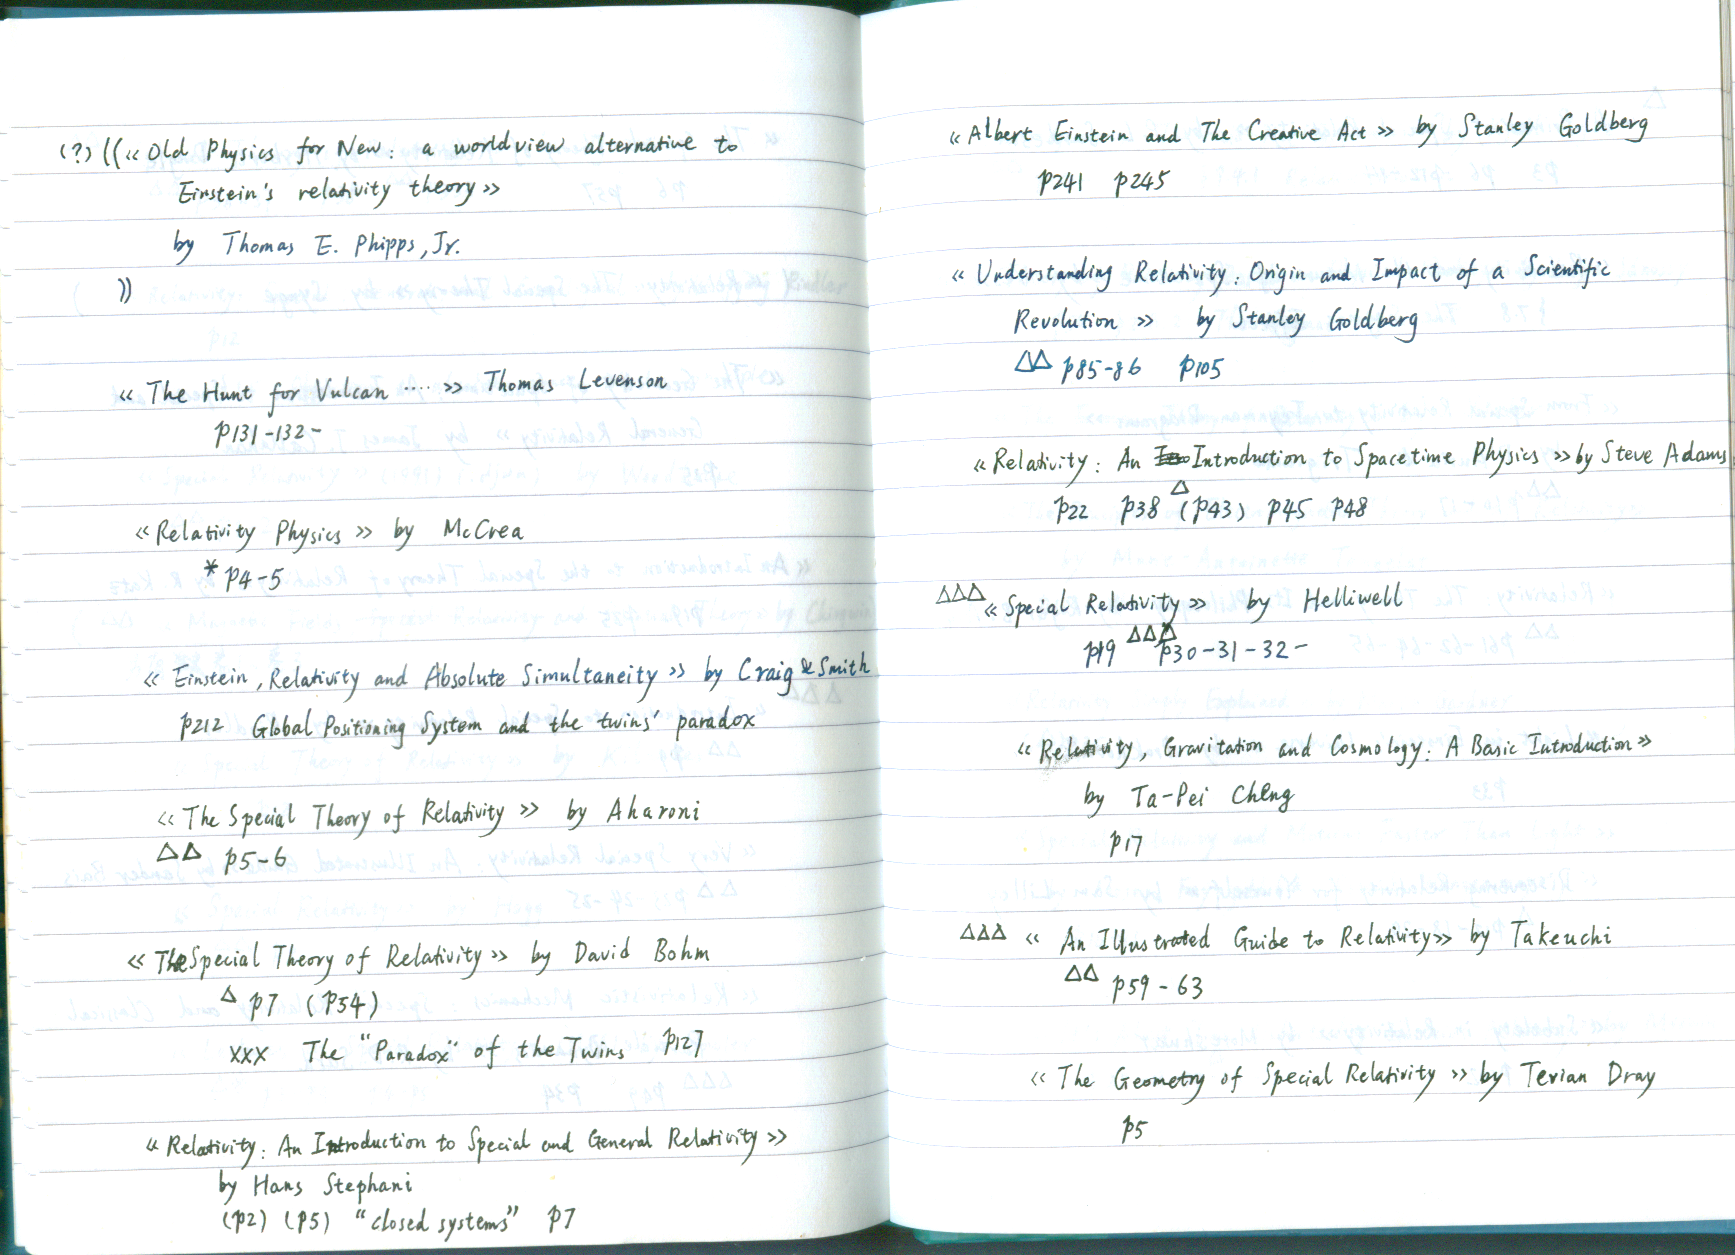 (?) ((« Old Physics for New: a worldview alternative to
Einstein's relativity theory »
by Thomas E. Phipps, Jr.
))
« The Hunt for Vulcan ···· » Thomas Levenson
p131-132-
« Relativity Physics » by McCrea
* p4-5
« Einstein, Relativity and Absolute Simultaneity » by Craig & Smith
p212 Global Positioning System and the twins' paradox
« The Special Theory of Relativity » by Aharoni
△△ p5-6
« The Special Theory of Relativity » by David Bohm
△ p7 (p54)
xxx The "Paradox" of the Twins p127
« Relativity: An Introduction to Special and General Relativity »
by Hans Stephani
(p2) (p5) "closed systems" p7
« Albert Einstein and The Creative Act » by Stanley Goldberg
p241 p245
« Understanding Relativity: Origin and Impact of a Scientific
Revolution » by Stanley Goldberg
△△ p85-86 p105
« Relativity: An Introduction to Spacetime Physics » by Steve Adams
p22 p38 △(p43) p45 p48
△△△ « Special Relativity » by Helliwell
p19 △△△ p30-31-32-
« Relativity, Gravitation and Cosmology: A Basic Introduction »
by Ta-Pei Cheng
p17
△△△ « An Illustrated Guide to Relativity » by Takeuchi
△△ p59-63
« The Geometry of Special Relativity » by Tevian Dray
p5